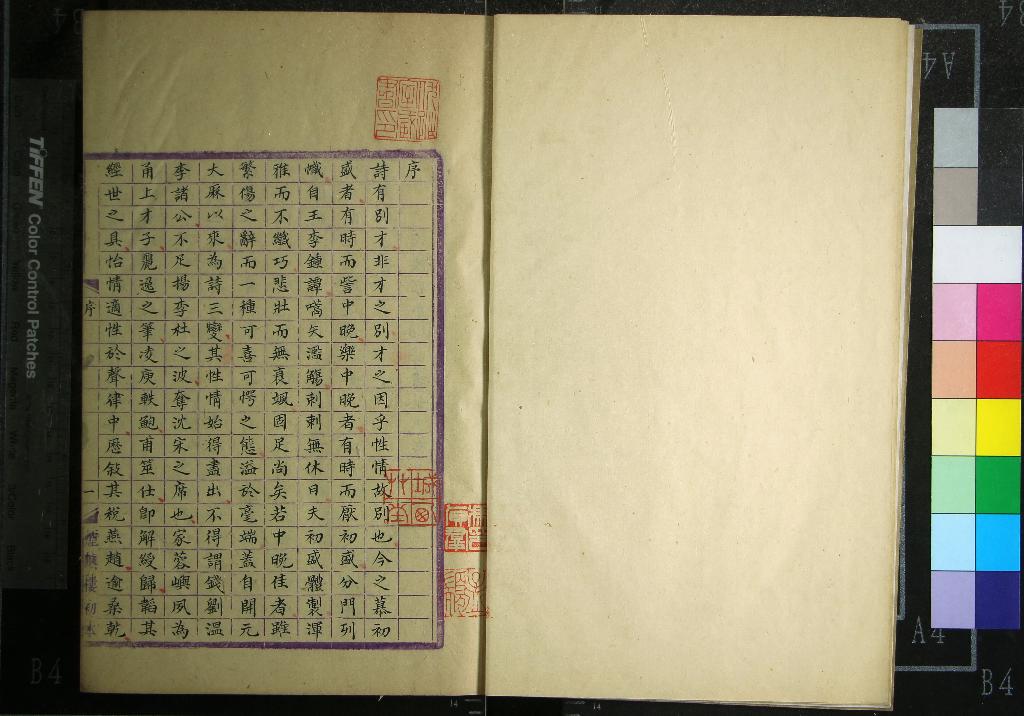 序
詩有別才非才之別才之因乎性情故別也今之慕初
盛者有時而訾中晚樂中晚者有時而厭初盛分門列
幟自王李鍾譚噶矢濫觴刺刺無休日夫初盛體製渾
雅而不纖巧悲壯而無哀颯固足尚矣若中晚佳者雖
繁傷之辭而一種可喜可愕之態溢於毫端蓋自開元
大厤以來為詩三變其性情始得盡出不得謂錢劉溫
李諸公不足揚李杜之波奪沈宋之席也家蓉嶼夙為
甬上才子麗逸之筆凌庾軼鮑甫筮仕即解綬歸韜其
經世之具怡情適性於聲律中歷敘其稅燕趙逾桑乾
序
一
樓初本
TIFFEN Color Control Patches
A4
B4
A4
B4